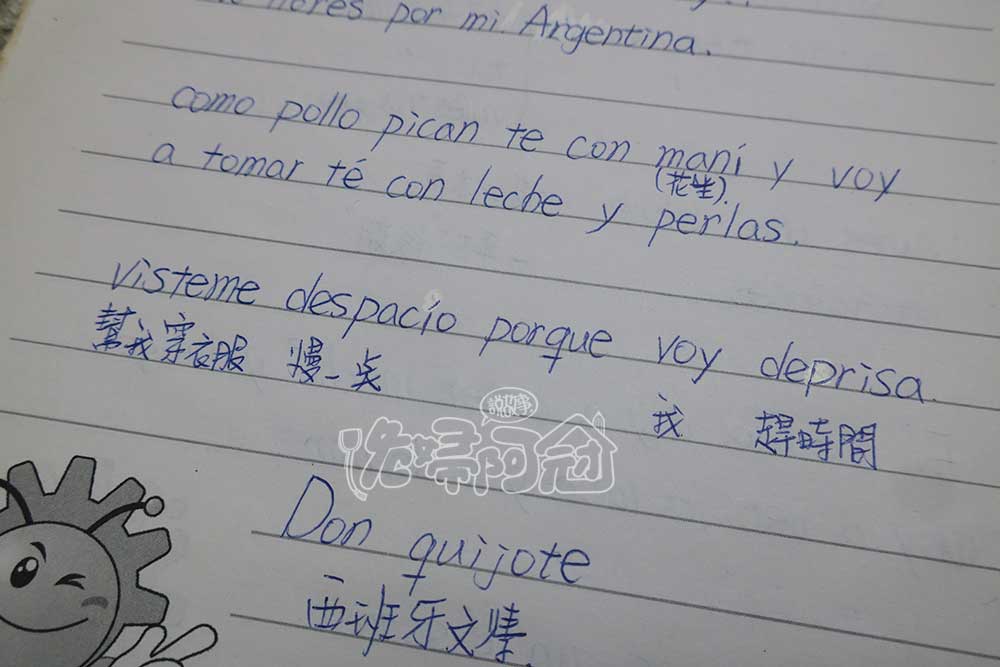 por mi Argentina.
como pollo pican te con maní y voy
(花生).
a tomar té con leche y perlas.
visteme despacio porque voy deprisa.
幫我穿衣服 慢一点 我 趕時間
說故事
阿冠
Don quijote
西班牙文